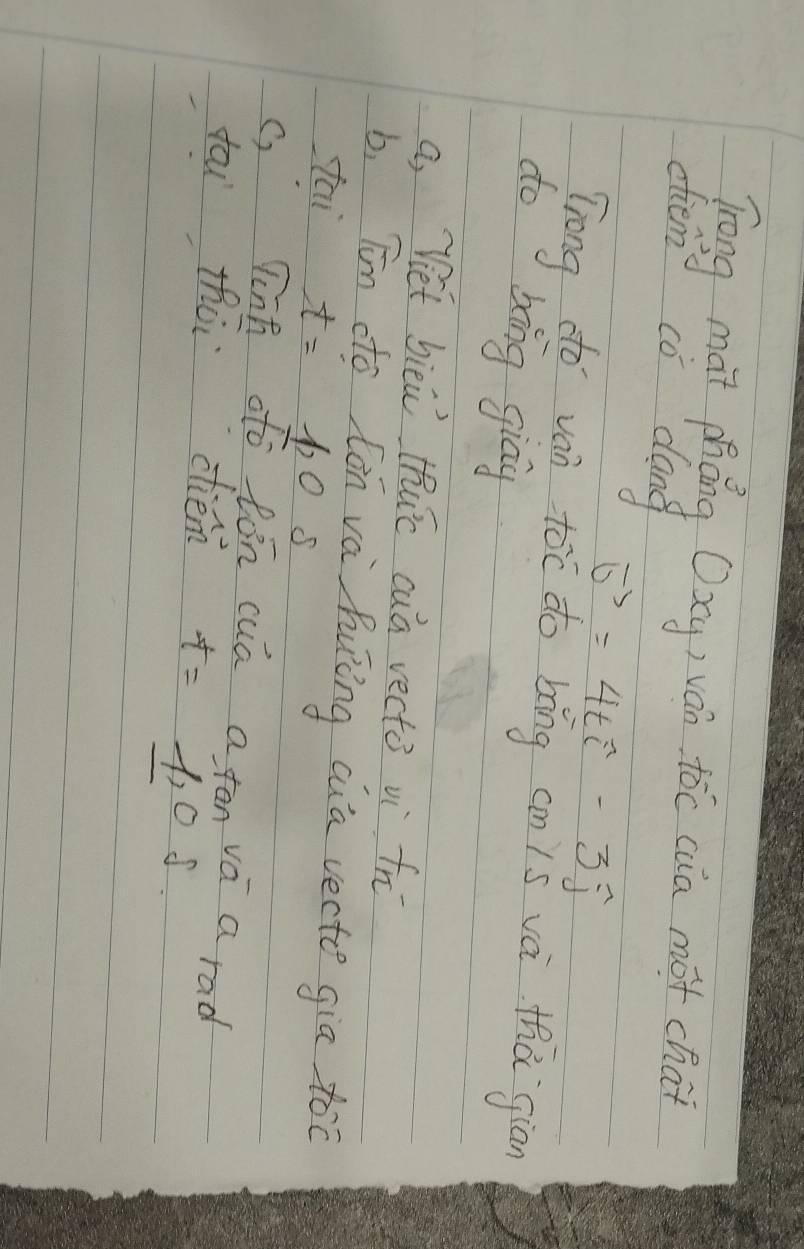 Trong mặt phẳng Oxy, vận tốc của một chất
điểm có dạng
v→ = 4t î - 3 ĵ
Trong đó vận tốc đo bằng cm/s và thời gian
đo bằng giây
a, Viết biểu thức của vectơ vị trí
b, Tìm độ lớn và hướng của vectơ gia tốc
tại t = 1,0 s
c, Tính độ lớn của a tan và a rad
tại thời điểm t = 1,0 s.